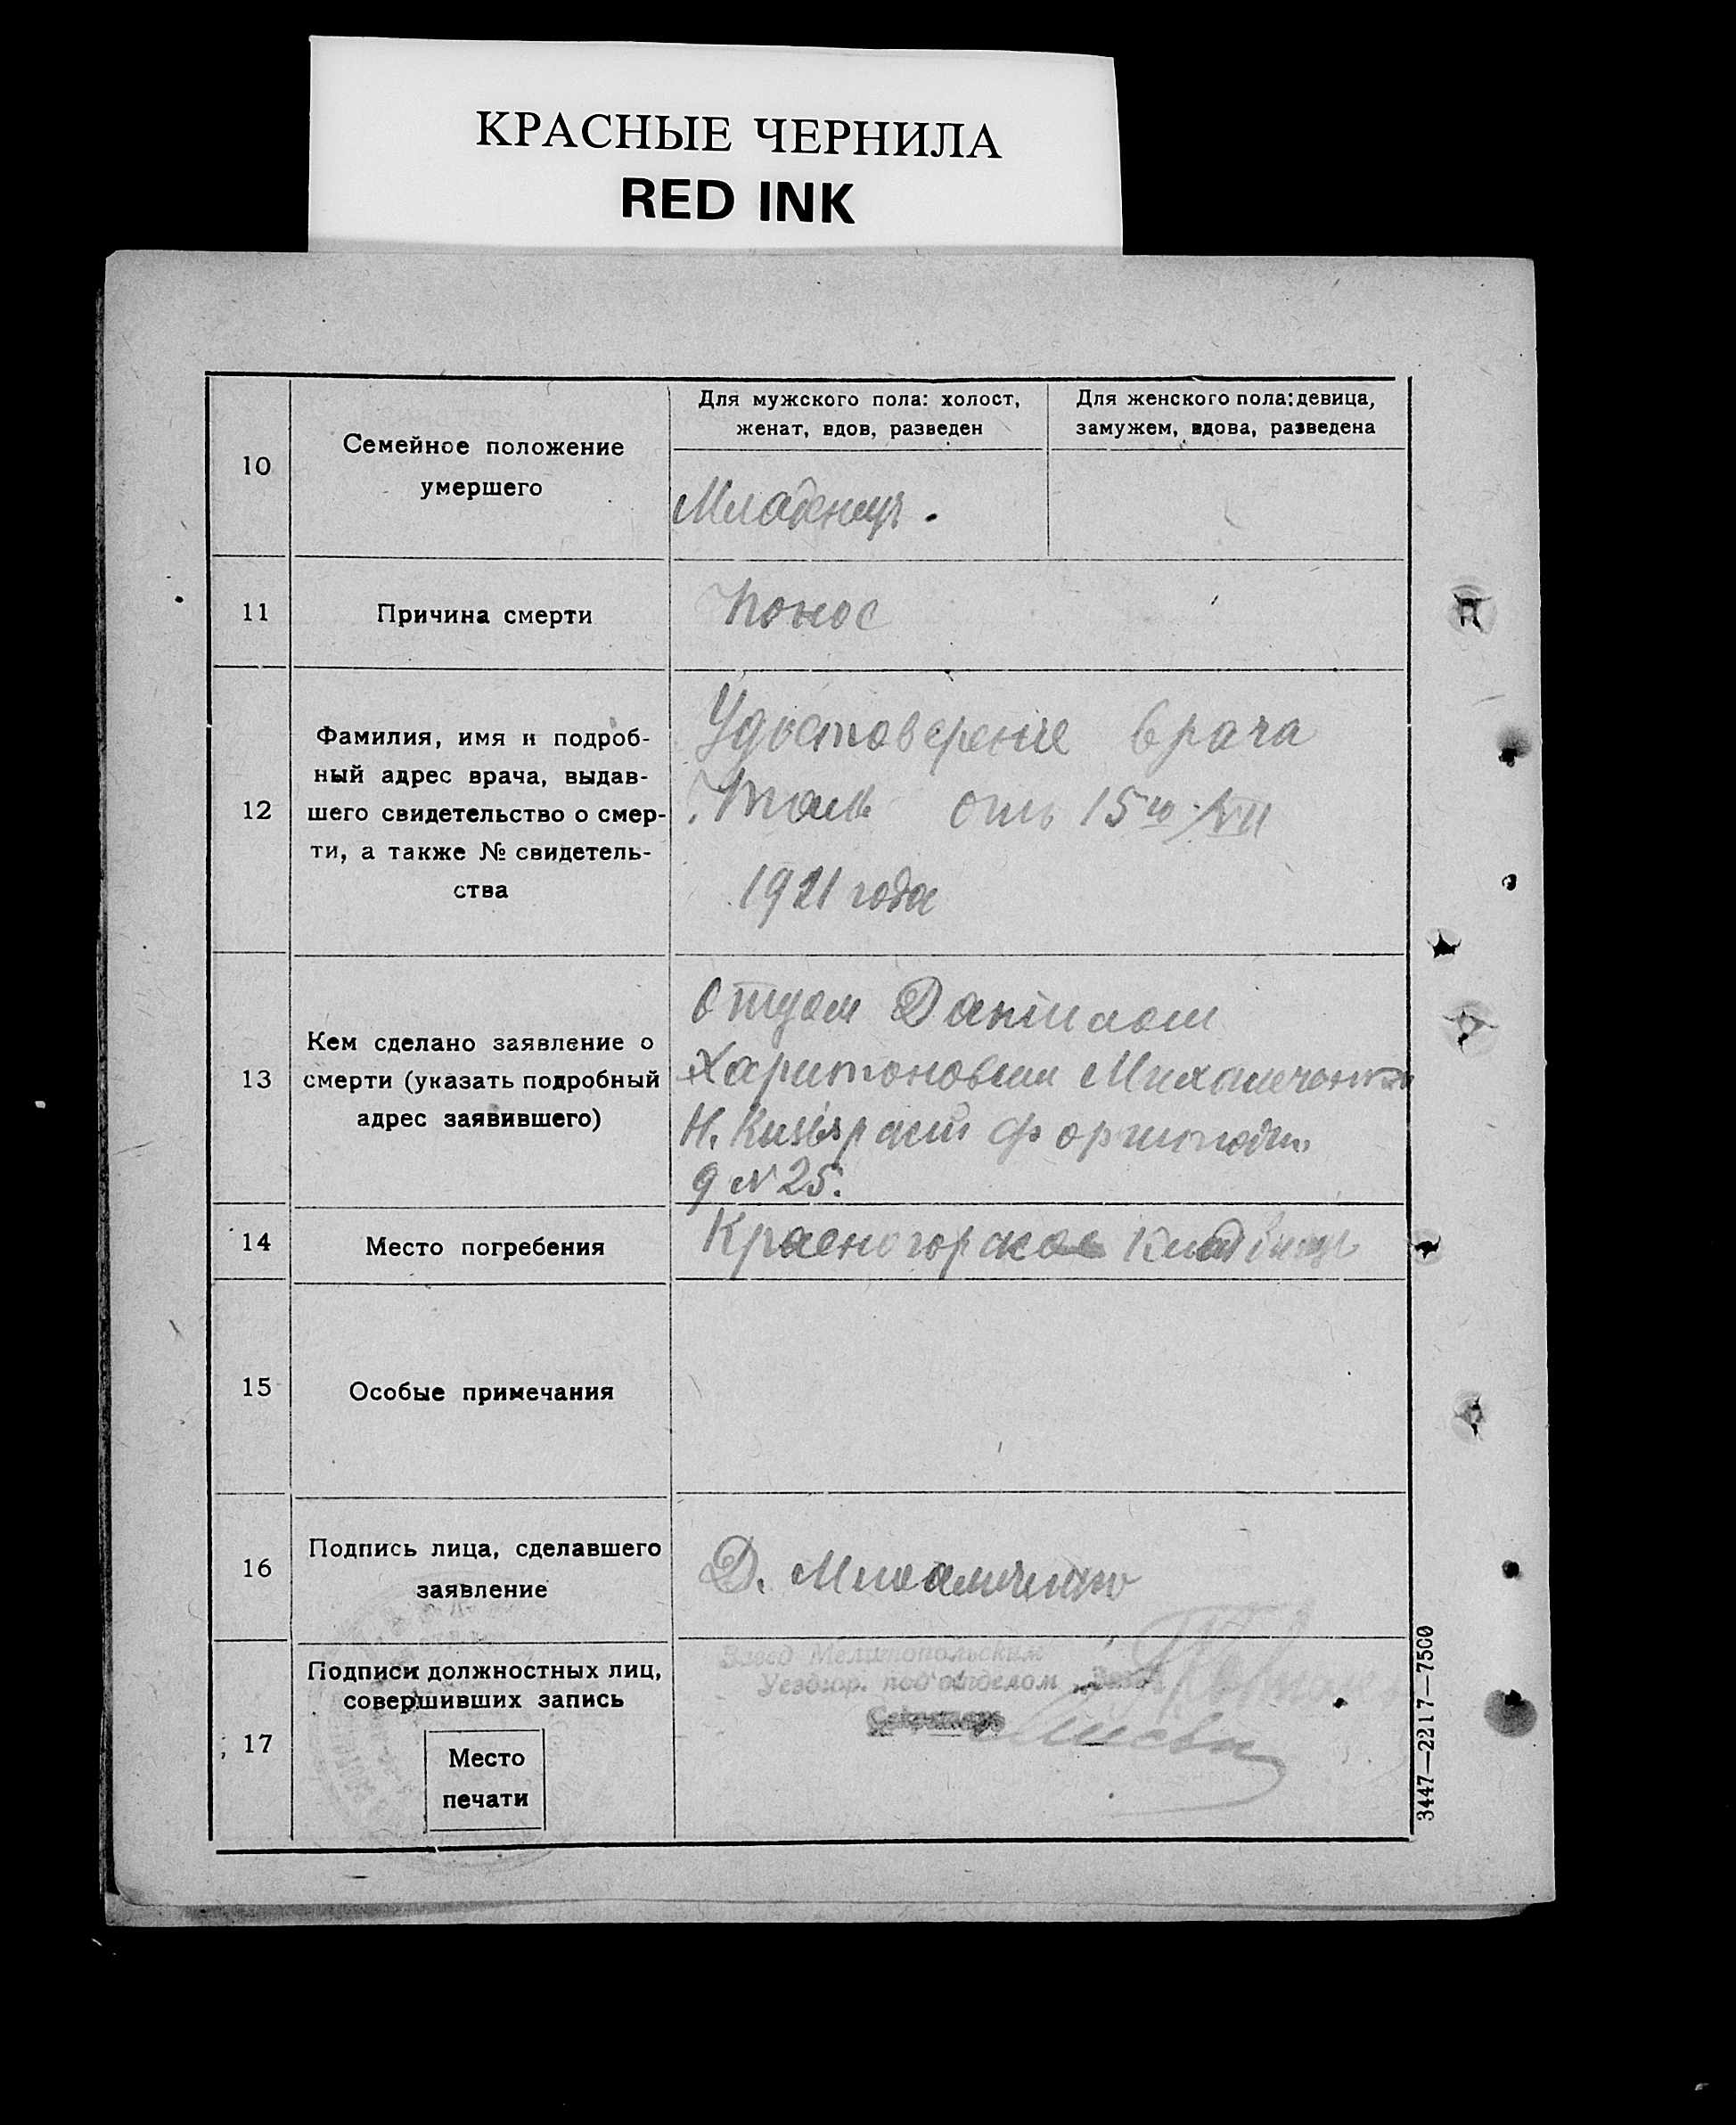 КРАСНЫЕ ЧЕРНИЛА
RED INK
10
Семейное положение
умершего
Для мужского пола: холост,
женат, вдов, разведен
Для женского пола: девица,
замужем, вдова, разведена
Младенец.
11
Причина смерти
Понос
12
Фамилия, имя и подроб-
ный адрес врача, выдав-
шего свидетельство о смер-
ти, а также № свидетель-
ства
Удостоверение врача
отъ 15го/VII
1921 года
13
Кем сделано заявление о
смерти (указать подробный
адрес заявившего)
Отцом Данiилом
Харитоновым Михальченко
Н.
д № 25.
14
Место погребения
Красногорское кладбище
15
Особые примечания
16
Подпись лица, сделавшего
заявление
Д. Михальченко
17
Подписи должностных лиц,
совершивших запись
Место
печати
Завед Мелитопольским
подотделом
Секретарь
3447—2217—7500